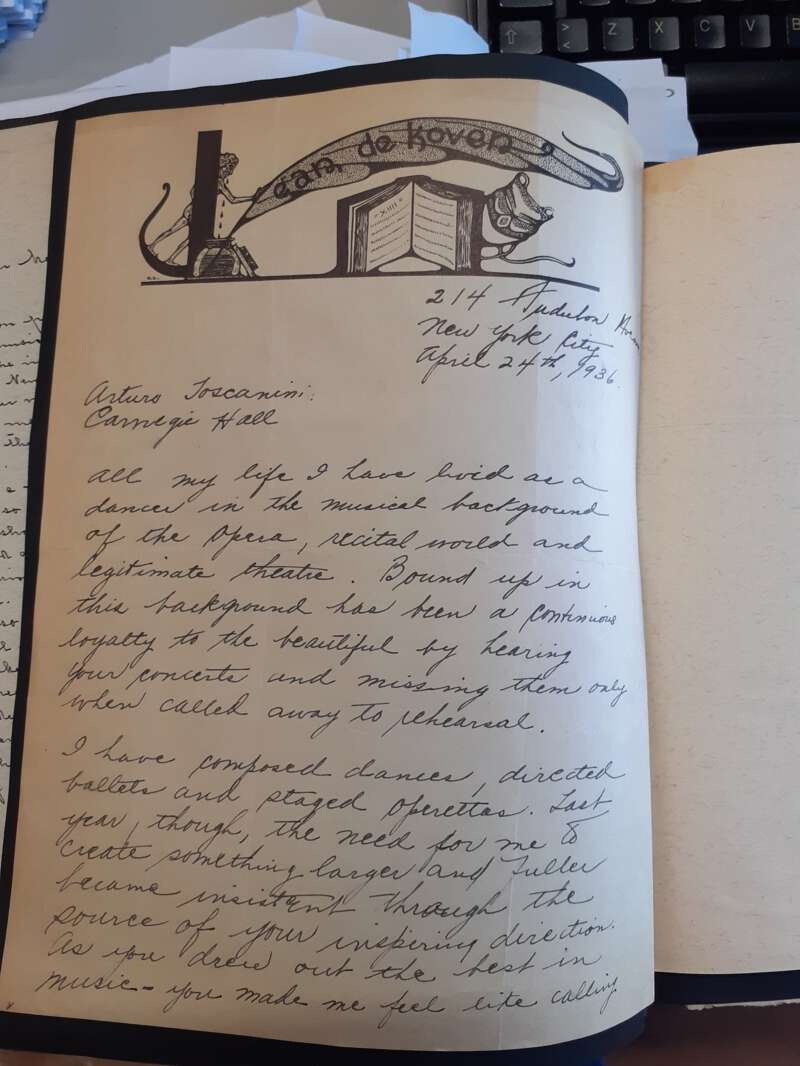 Jean de Koven
XIII
214 Audubon Ave
New York City
April 24th, 1936.
Arturo Toscanini:
Carnegie Hall
All my life I have lived as a
dancer in the musical background
of the Opera, recital world and
legitimate theatre. Bound up in
this background has been a continuous
loyalty to the beautiful by hearing
your concerts and missing them only
when called away to rehearsal.
I have composed dances, directed
ballets and staged operettas. Last
year, though, the need for me to
create something larger and fuller
became insistent through the
source of your inspiring direction.
As you drew out the best in
music - you made me feel like calling
Z X C V B